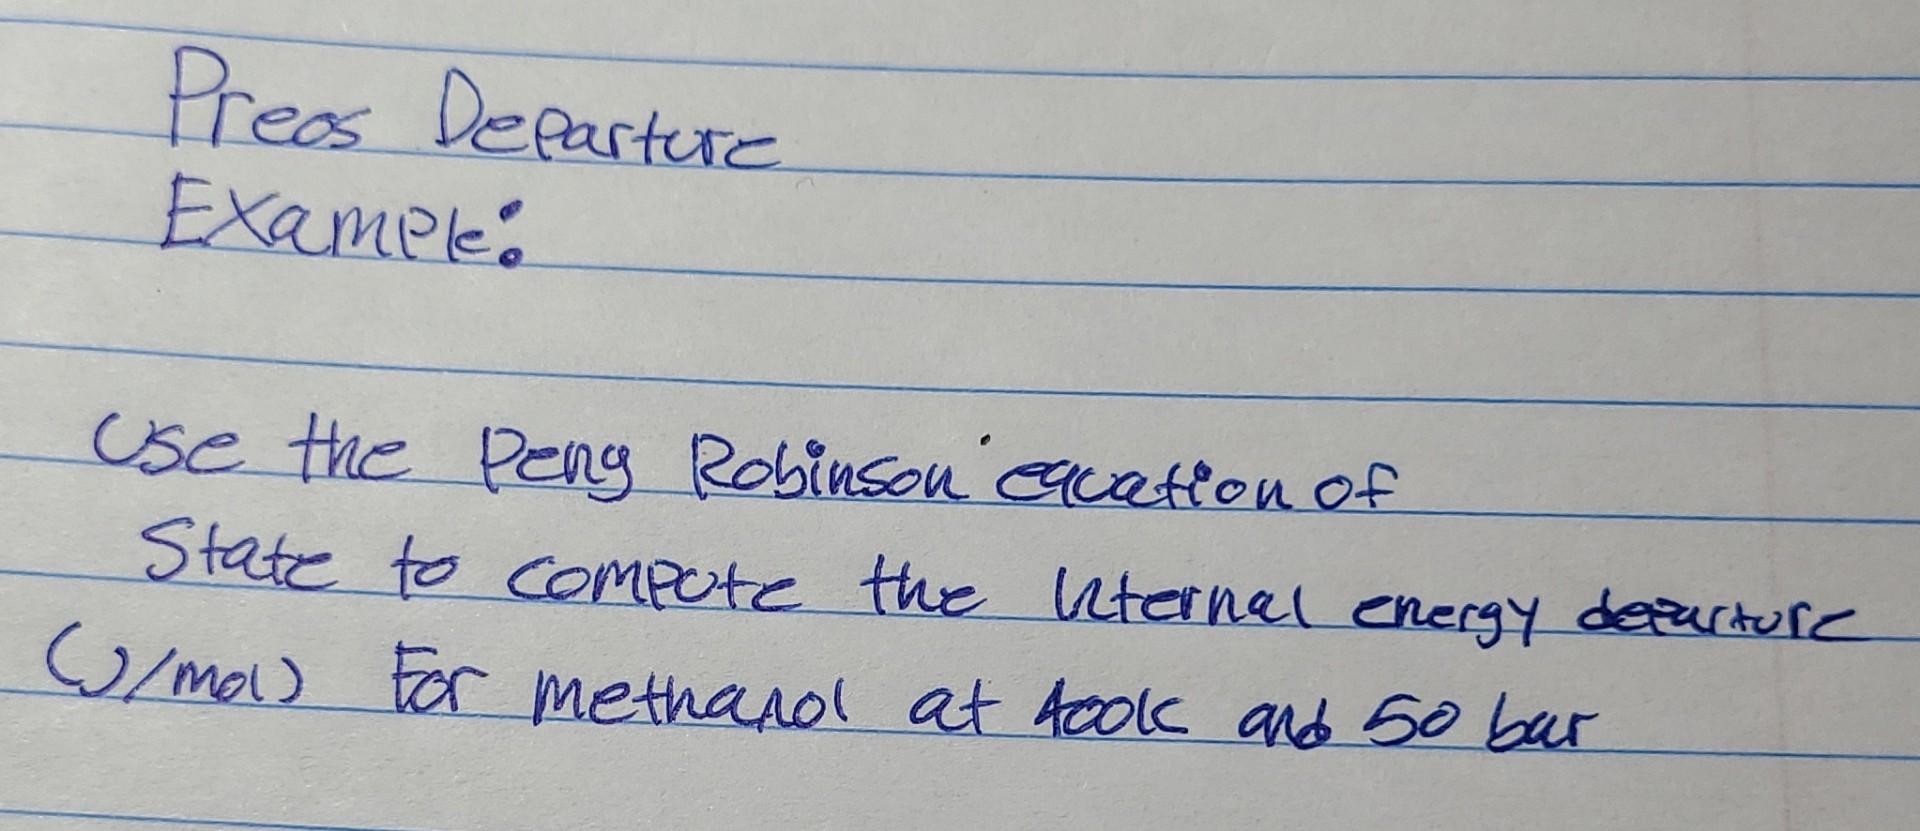 Preos Departure
Example:
Use the Peng Robinson equation of
State to compute the Internal energy departure
(J/mol) For methanol at 400K and 50 bar